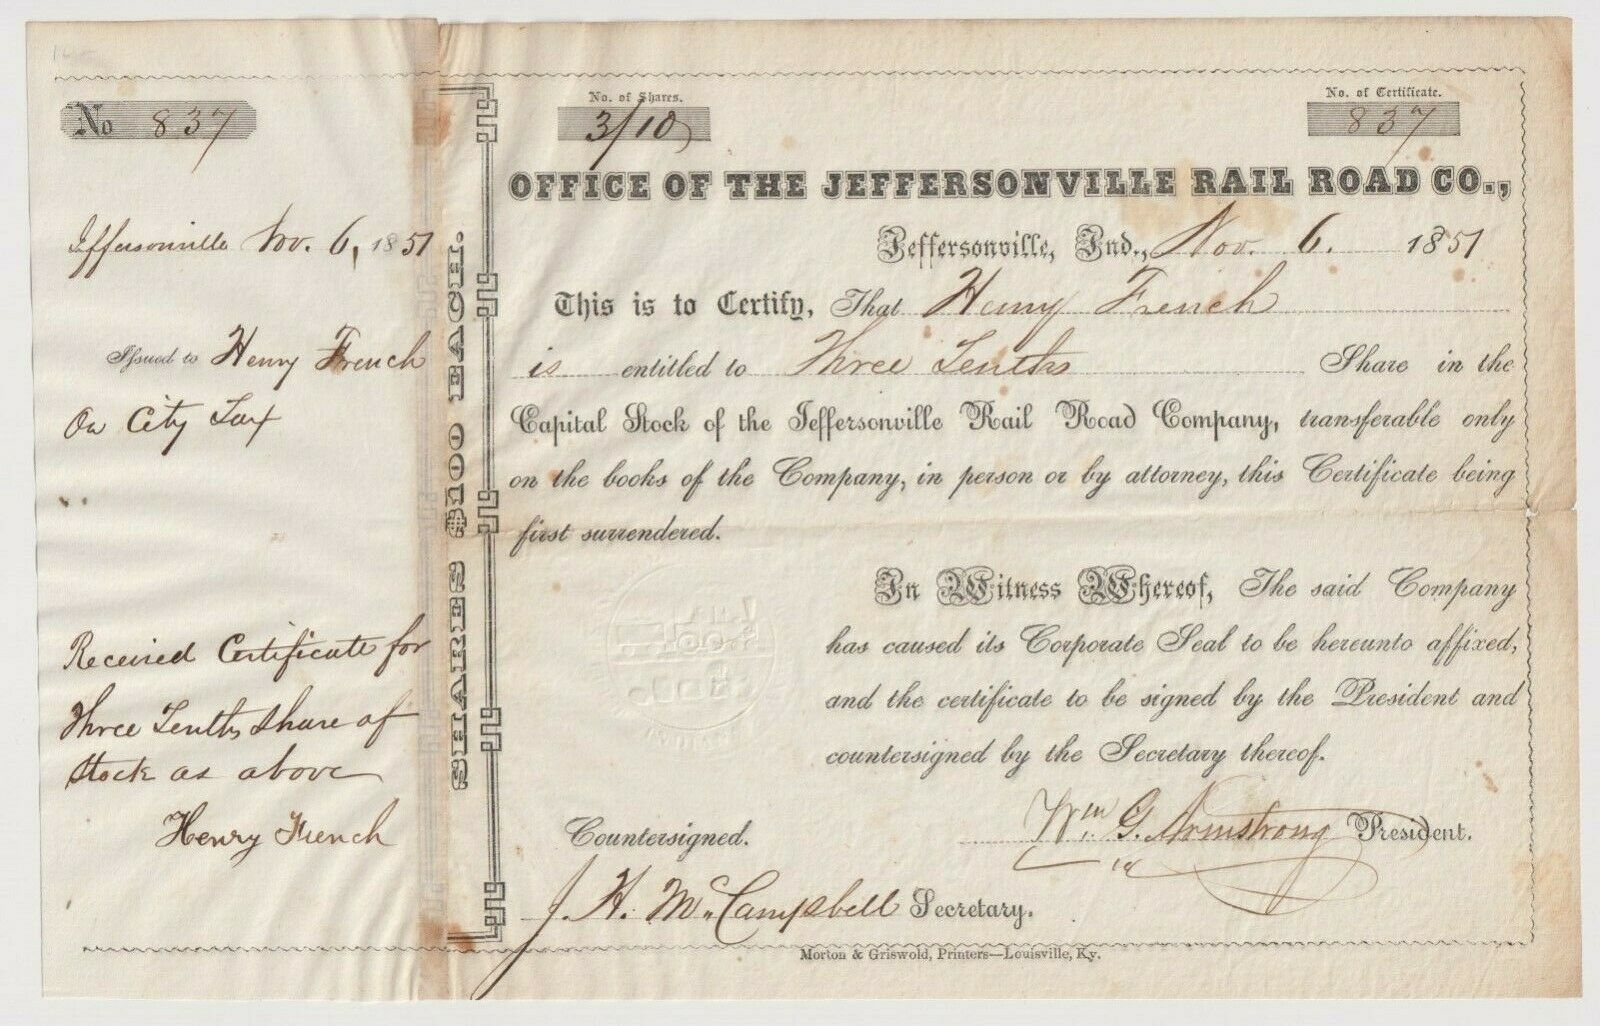 No 837
Jeffersonville Nov. 6, 1851
Issued to Henry French
On City Tax
Received Certificate for
Three Tenths share of
stock as above
Henry French
SHARES $100 EACH.
No. of Shares.
3/10
No. of Certificate.
837
OFFICE OF THE JEFFERSONVILLE RAIL ROAD CO.,
Jeffersonville, Ind., Nov. 6. 1851
This is to Certify, That Henry French
is entitled to Three Tenths Share in the
Capital Stock of the Jeffersonville Rail Road Company, transferable only
on the books of the Company, in person or by attorney, this Certificate being
first surrendered.
In Witness Whereof, The said Company
has caused its Corporate Seal to be hereunto affixed,
and the certificate to be signed by the President and
countersigned by the Secretary thereof.
Wm. G. Armstrong President.
Countersigned.
J. H. McCampbell Secretary.
Morton & Griswold, Printers—Louisville, Ky.